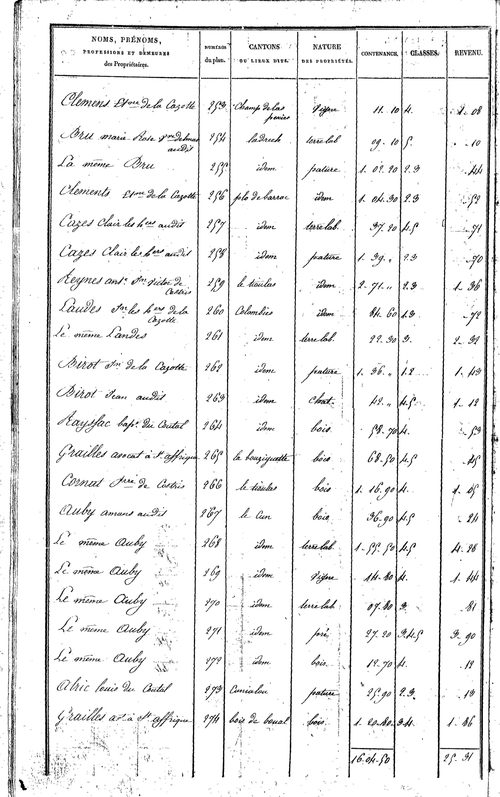 NOMS, PRÉNOMS, PROFESSIONS ET DEMEURES des Propriétaires. | NUMÉROS du plan. | CANTONS OU LIEUX DITS. | NATURE DES PROPRIÉTÉS. | CONTENANCE. | CLASSES. | REVENU.
Clemens de la Cazotte 253 Champ de las vigne 11. 10 4. 1. 08
Bru marie Rose audit 254 ladrech terre lab 09. 10 5. .. 10
La même Bru 255 idem pature 1. 02. 20 2.3 .. 44
Clements de la Cazotte 256 idem 1. 04. 30 2.3 .. 52
Cazes Clair les hers audit 257 idem terre lab. 37. 20 4.5 .. 71
Cazes Clair les hers audit 258 idem pature 1. 39. „ 2.3 .. 70
Reynes ant. de Costris 259 idem 2. 71. „ 2.3 1. 36
Landes les hers de la Cazotte 260 Colombies idem 84. 60 1.3 .. 72
Le même Landes 261 idem terre lab. 22. 30 3. 2. 32
Birot de la Cazotte 262 idem pature 1. 36. „ 1.2 1. 43
Birot Jean audit 263 idem 42. „ 4.5 1. 12
Rayssac bapt. du Coutal 264 idem bois 58. 70 4. .. 53
Grailles avocat à St. affrique 265 le bouziguette bois 68. 50 4.5 .. 45
Cornat de Costris 266 bois 1. 16. 90 4. 1. 05
Auby amans audit 267 bois 36. 90 4.5 .. 24
Le même Auby 268 idem terre lab. 1. 55. 50 4.5 4. 26
Le même Auby 269 idem vigne 14. 80 4. 1. 44
Le même Auby 270 idem terre lab. 07. 80 3. .. 81
Le même Auby 271 idem pré. 27. 20 3.4.5 3. 90
Le même Auby 272 idem bois. 12. 70 4. .. 12
Alric louis du Coutal 273 pature 25. 90 2.3 .. 13
Grailles av. à St. affrique 274 bois de boual bois. 1. 20. 80 3.4 1. 86
16. 04. 50 25. 31